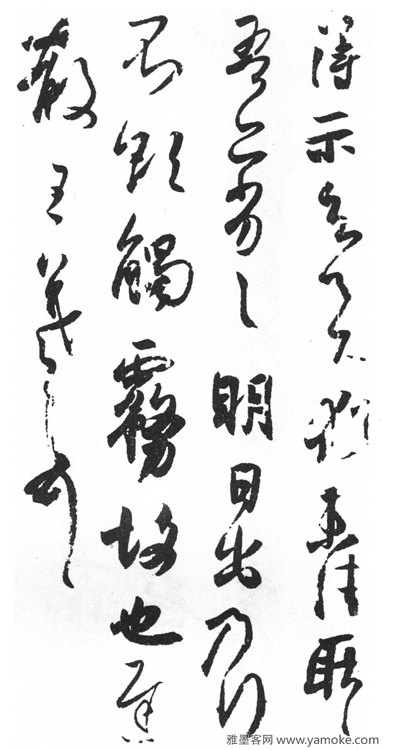 得示知足下猶未佳耿耿
吾亦劣劣明日出乃行
不欲觸霧故也遲
散王羲之頓首
雅墨客网 www.yamoke.com